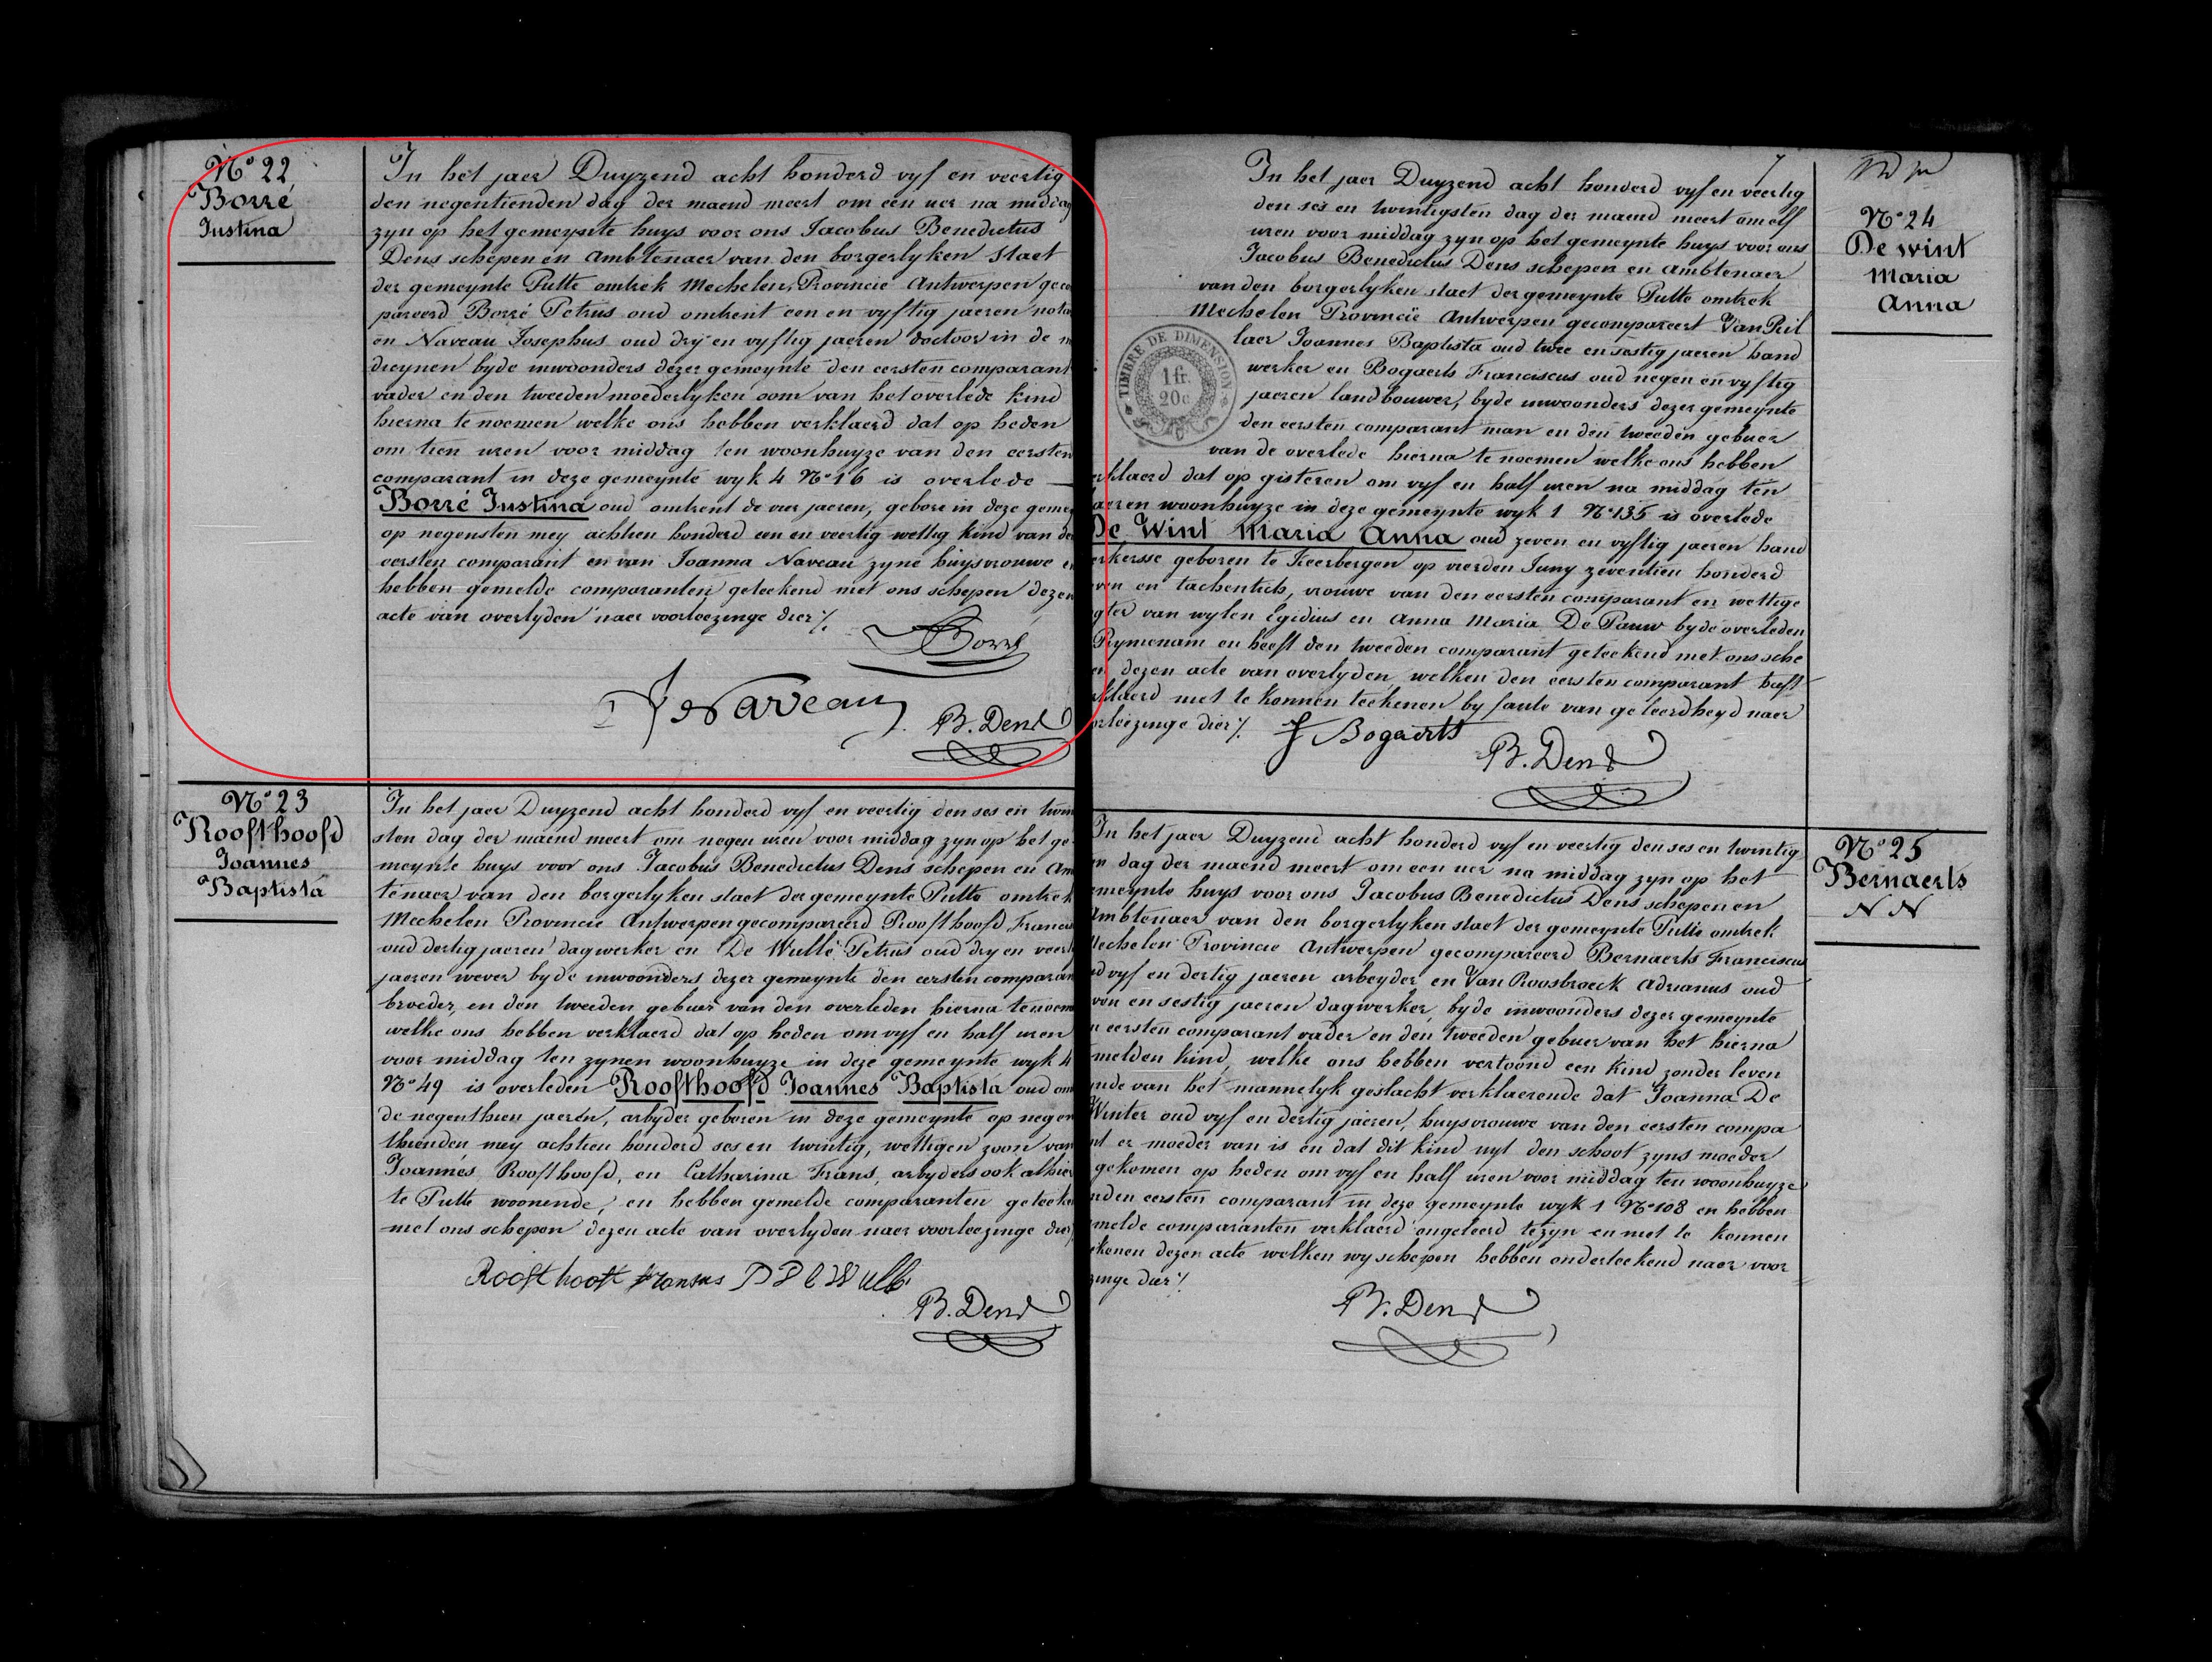 N° 22
Borré
Justina
In het jaer Duyzend acht honderd vyf en veertig
den negentienden dag der maend meert om een uer na middag
zyn op het gemeynte huys voor ons Jacobus Benedictus
Dens schepen en ambtenaer van den borgerlyken staet
der gemeynte Putte omtrek Mechelen, Provincie Antwerpen gecom
pareerd Borré Petrus oud omtrent een en vyftig jaeren nota
en Naveau Josephus oud dry en vyftig jaeren doctoor in de m
dreynen byde inwoonders dezer gemeynte den eersten comparant
vader en den tweeden moederlyken oom van het overlede kind
hierna te noemen welke ons hebben verklaerd dat op heden
om tien uren voor middag ten woonhuyze van den eersten
comparant in deze gemeynte wyk 4 N° 16 is overlede
Borré Justina oud omtrent de vier jaeren, gebore in deze geme
op negensten mey achtien honderd een en veertig wettig kind van den
eersten comparant en van Joanna Naveau zyne huysvrouwe en
hebben gemelde comparanten geteekend met ons schepen dezen
acte van overlyden naer voorleezinge dier ./.
Borré
J Naveau
B. Dens
N° 23
Roofthoofd
Joannes
Baptista
In het jaer Duyzend acht honderd vyf en veertig den ses en twin
sten dag der maend meert om negen uren voor middag zyn op het ge
meynte huys voor ons Jacobus Benedictus Dens schepen en Am
tenaer van den borgerlyken staet der gemeynte Putte omtrek
Mechelen Provincie Antwerpen gecompareerd Roofthoofd Francis
oud dertig jaeren dagwerker en De Wulle Petrus oud dry en veert
jaeren wever byde inwoonders dezer gemeynte den eersten comparan
broeder, en den tweeden gebuer van den overleden hierna te noem
welke ons hebben verklaerd dat op heden om vyf en half uren
voor middag ten zynen woonhuyze in deze gemeynte wyk 4
N° 49 is overleden Roofthoofd Joannes Baptista oud om
de negenthien jaeren, arbyder geboren in deze gemeynte op negen
thienden mey achtien honderd ses en twintig, wettigen zoon van
Joannes Roofthoofd, en Catharina Frans, arbyders ook alhier
te Putte woonende, en hebben gemelde comparanten geteeke
met ons schepen dezen acte van overlyden naer voorleezinge dier
Roofthooft fransus P De Wulle
B. Dens
7
N° 24
De wint
Maria
Anna
In het jaer Duyzend acht honderd vyf en veertig
den ses en twintigsten dag der maend meert om elf
uren voor middag zyn op het gemeynte huys voor ons
Jacobus Benedictus Dens schepen en ambtenaer
van den borgerlyken staet der gemeynte Putte omtrek
Mechelen Provincie Antwerpen gecompareert Van Pril
laer Joannes Baptista oud twee en sestig jaeren hand
werker en Bogaerts Franciscus oud negen en vyftig
jaeren landbouwer, byde inwoonders dezer gemeynte
den eersten comparant man en den tweeden gebuer
van de overlede hierna te noemen welke ons hebben
rklaerd dat op gisteren om vyf en half uren na middag ten
aeren woonhuyze in deze gemeynte wyk 1 N° 135 is overlede
De Wint Maria Anna oud zeven en vyftig jaeren hand
erkersse geboren te Keerbergen op vierden Juny zeventien honderd
ven en tachentich, vrouwe van den eersten comparant en wettige
gter van wylen Egidius en Anna Maria De Pauw byde overleden
Rymenam en heeft den tweeden comparant geteekend met ons sche
en dezen acte van overlyden welken den eersten comparant heeft
rklaerd niet te konnen teekenen by faute van geleerdheyd naer
orleezinge dier ./.
TIMBRE DE DIMENSION
1 fr.
20 c
F Bogaerts
B. Dens
N° 25
Bernaerts
N N
In het jaer Duyzend acht honderd vyf en veertig den ses en twintig
en dag der maend meert om een uer na middag zyn op het
emeynte huys voor ons Jacobus Benedictus Dens schepen en
Ambtenaer van den borgerlyken staet der gemeynte Putte omtrek
Mechelen Provincie Antwerpen gecompareerd Bernaerts Franciscus
ud vyf en dertig jaeren arbeyder en Van Roosbroeck Adrianus oud
ven en sestig jaeren dagwerker byde inwoonders dezer gemeynte
n eersten comparant vader en den tweeden gebuer van het hierna
melden kind, welke ons hebben vertoond een kind zonder leven
nde van het mannelyk geslacht verklaerende dat Joanna De
Winter oud vyf en dertig jaeren, huysvrouwe van den eersten compa
nt er moeder van is en dat dit kind uyt den schoot zyns moeder
gekomen op heden om vyf en half uren voor middag ten woonhuyze
nden eersten comparant in deze gemeynte wyk 1 N° 108 en hebben
melde comparanten verklaerd ongeleerd te zyn en niet te konnen
ekenen dezen acte welken wy schepen hebben onderteekend naer voor
zinge dier ./.
B. Dens